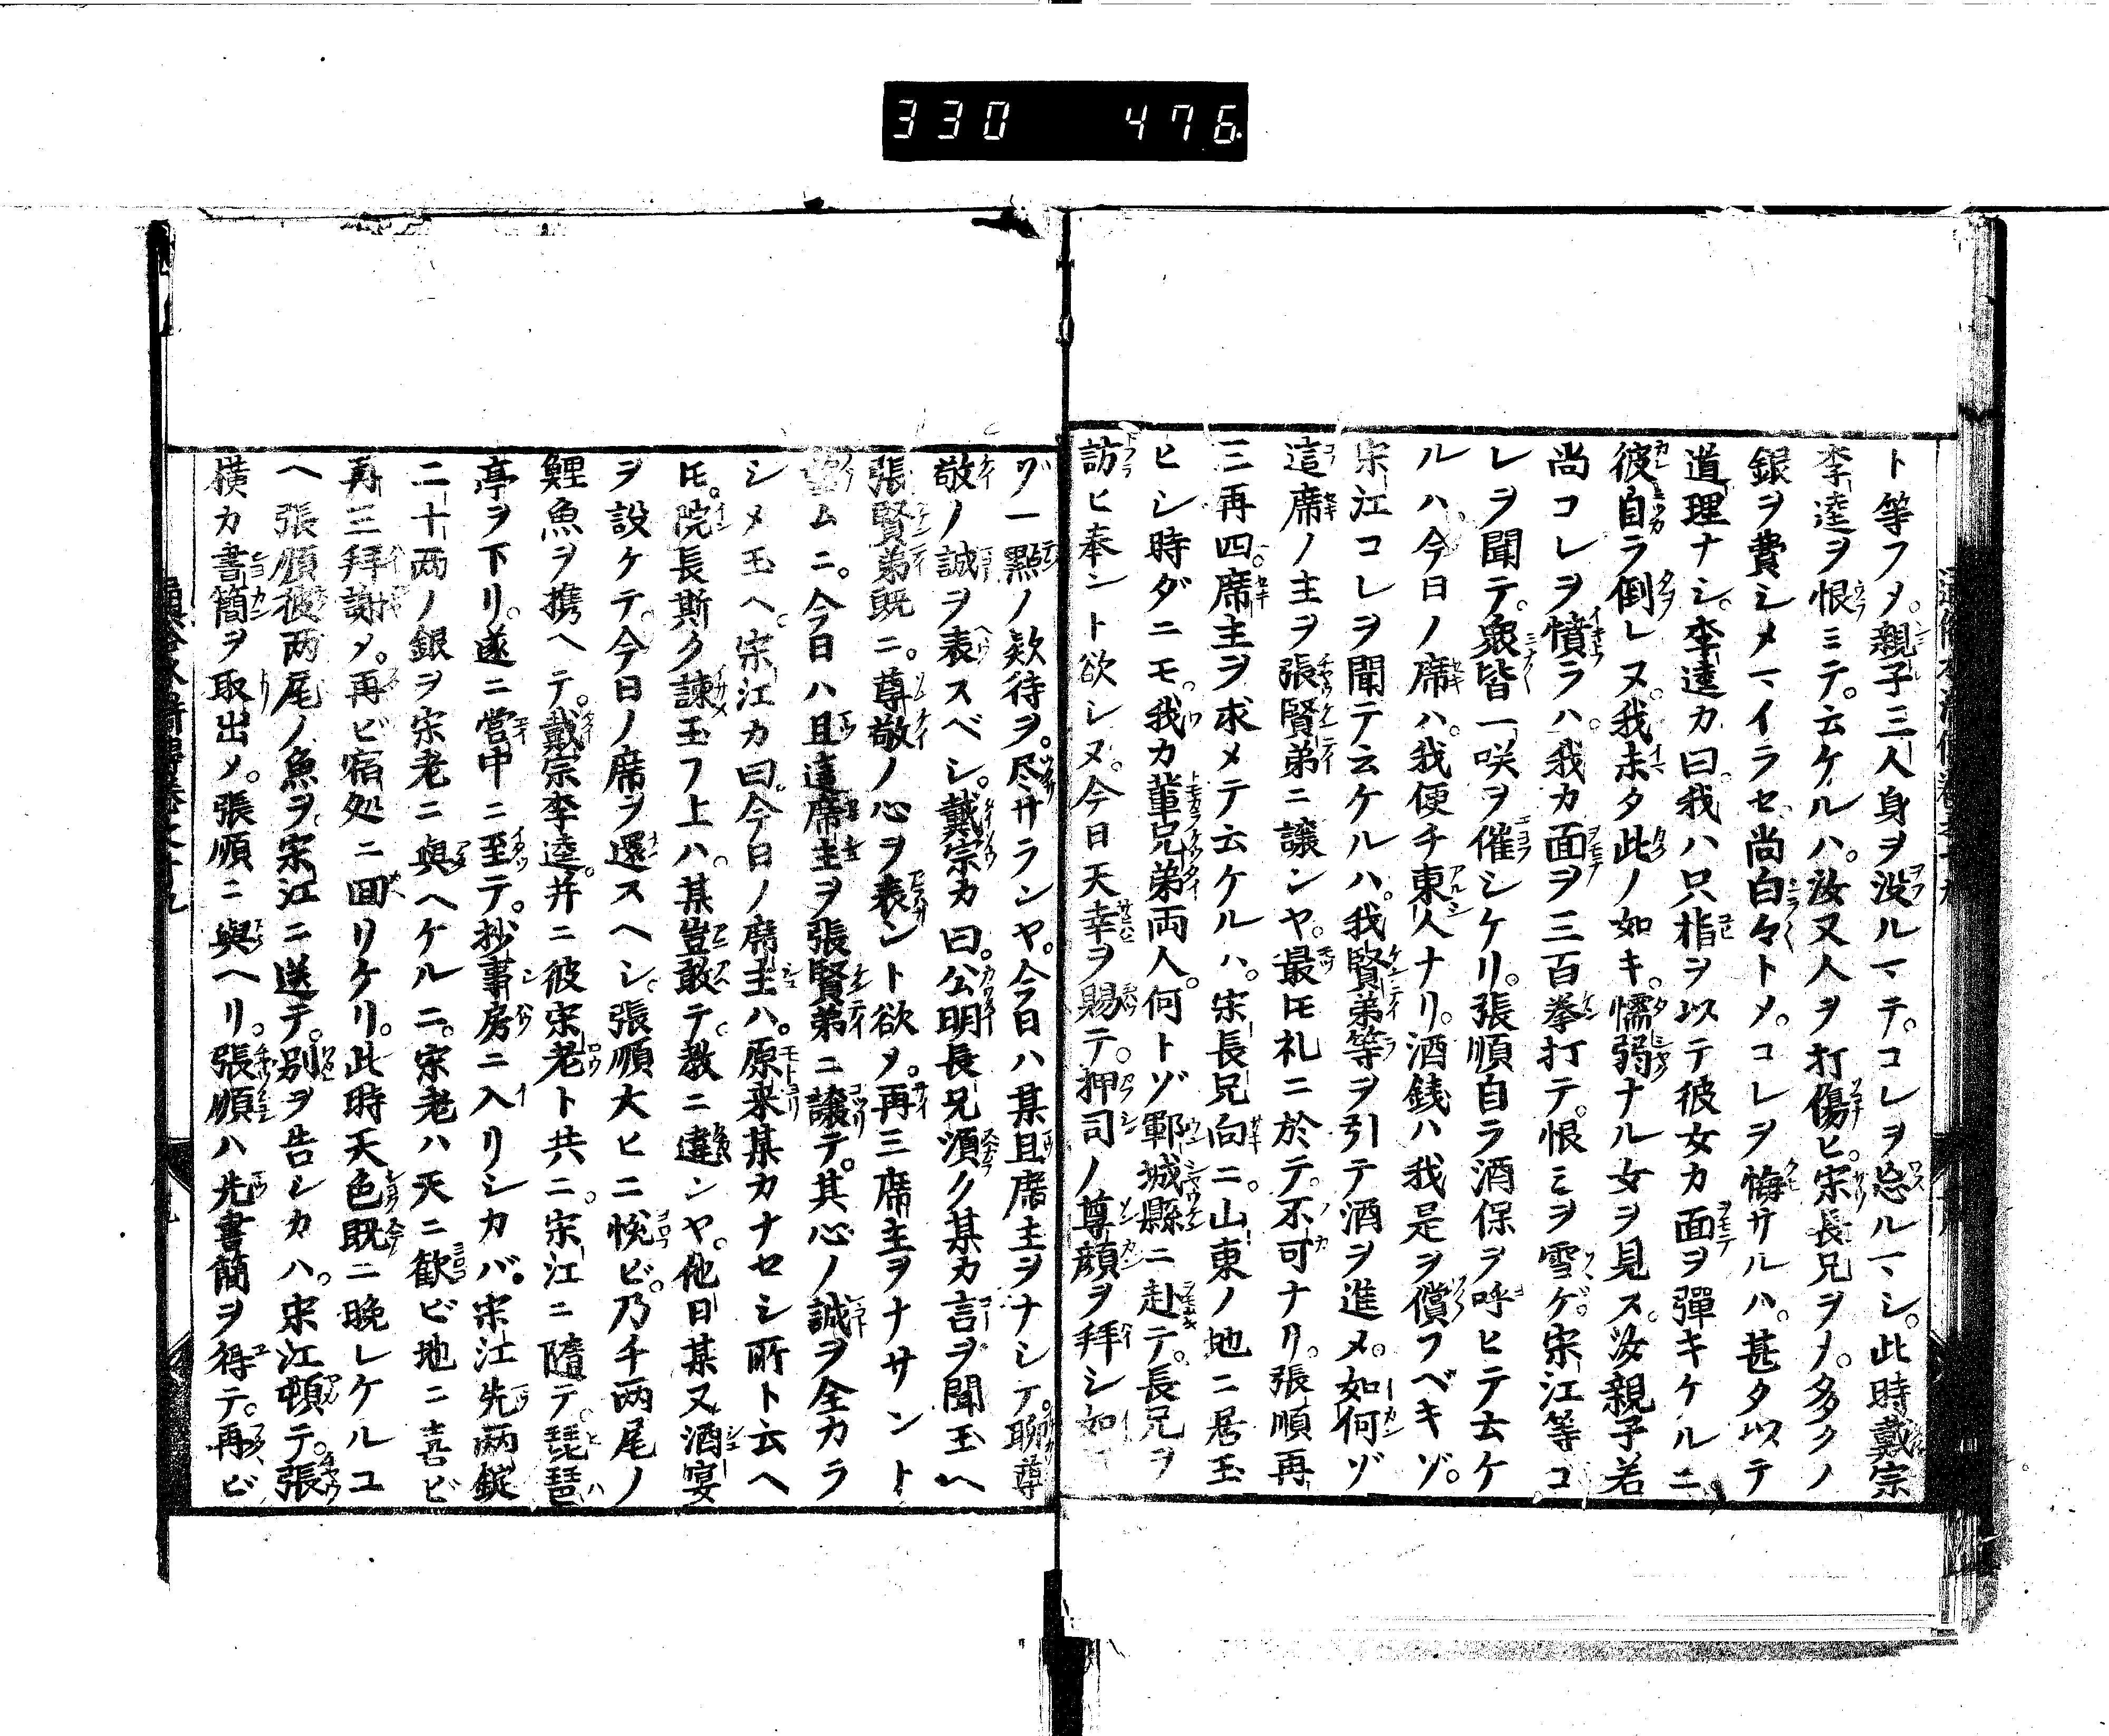 330 476
ト等フメ。親子三人身ヲ没ルマテ。コレヲ忘ルマシ。此時戴宗
李逵ヲ恨ミテ。云ケルハ。汝又人ヲ打傷ヒ。宋長兄ヲメ。多クノ
銀ヲ費シメマイラセ。尚白々トメ。コレヲ悔サルハ。甚タ以テ
道理ナシ。李逵カ曰。我ハ只指ヲ以テ彼女カ面ヲ彈キケルニ。
彼自ラ倒レヌ。我未タ此ノ如キ。懦弱ナル女ヲ見ス。汝親子若
尚コレヲ憤ラハ。我カ面ヲ三百拳打テ。恨ミヲ雪ゲ。宋江等コ
レヲ聞テ。衆皆一咲ヲ催シケリ。張順自ラ酒保ヲ呼ヒテ云ケ
ルハ。今日ノ席ハ。我便チ東人ナリ。酒銭ハ我是ヲ償フベキゾ。
宋江コレヲ聞テ云ケルハ。我賢弟等ヲ引テ酒ヲ進メ。如何ゾ
這席ノ主ヲ張賢弟ニ譲ンヤ。最モ礼ニ於テ。不可ナリ。張順再
三再四。席主ヲ求メテ云ケルハ。宋長兄向ニ。山東ノ地ニ居玉
ヒシ時ダニモ。我カ輩兄弟両人。何トゾ鄆城縣ニ赴テ。長兄ヲ
訪ヒ奉ント欲シヌ。今日天幸ヲ賜テ。押司ノ尊顔ヲ拜シ如
グ一點ノ欵待ヲ。尽サランヤ。今日ハ某且席主ヲナシテ。聊尊
敬ノ誠ヲ表スベシ。戴宗カ曰。公明長兄須ク某カ言ヲ聞玉ヘ
張賢弟既ニ。尊敬ノ心ヲ表ント欲メ。再三席主ヲナサント
望ムニ。今日ハ且這席主ヲ張賢弟ニ譲テ。其心ノ誠ヲ全カラ
シメ玉ヘ。宋江カ曰。今日ノ席主ハ。原来某カナセシ所ト云ヘ
ㇳモ。院長斯ク諫玉フ上ハ。某豈敢テ。教ニ違ンヤ。他日某又酒宴
ヲ設ケテ。今日ノ席ヲ還スヘシ。張順大ヒニ悅ビ。乃チ両尾ノ
鯉魚ヲ携ヘテ。戴宗李逵。并ニ彼宋老ト共ニ。宋江ニ隨テ。琵琶
亭ヲ下リ。遂ニ營中ニ至テ。抄事房ニ入リシカバ。宋江先両錠
二十両ノ銀ヲ宋老ニ與ヘケルニ。宋老ハ天ニ歓ビ地ニ喜ビ
再三拜謝メ。再ビ宿処ニ囬リケリ。此時天色既ニ晩レケルユ
ヘ張順彼両尾ノ魚ヲ。宋江ニ送テ。別ヲ告シカハ。宋江頓テ。張
横カ書簡ヲ取出メ。張順ニ與ヘリ。張順ハ先書簡ヲ得テ。再ビ